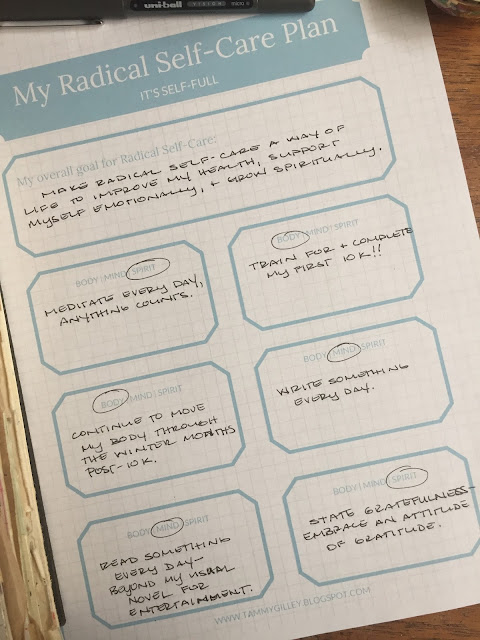 uni-ball VISION micro
My Radical Self-Care Plan
IT'S SELF-FULL
My overall goal for Radical Self-Care:
MAKE RADICAL SELF-CARE A WAY OF
LIFE TO IMPROVE MY HEALTH, SUPPORT
MYSELF EMOTIONALLY, + GROW SPIRITUALLY.
BODY | MIND | SPIRIT
MEDITATE EVERY DAY,
ANYTHING COUNTS.
BODY | MIND | SPIRIT
TRAIN FOR + COMPLETE
MY FIRST 10K!!
BODY | MIND | SPIRIT
CONTINUE TO MOVE
MY BODY THROUGH
THE WINTER MONTHS
POST-10K.
BODY | MIND | SPIRIT
WRITE SOMETHING
EVERY DAY.
BODY | MIND | SPIRIT
READ SOMETHING
EVERY DAY—
BEYOND MY USUAL
NOVEL FOR
ENTERTAINMENT.
BODY | MIND | SPIRIT
STATE GRATEFULNESS—
EMBRACE AN ATTITUDE
OF GRATITUDE.
WWW.TAMMYGILLEY.BLOGSPOT.COM